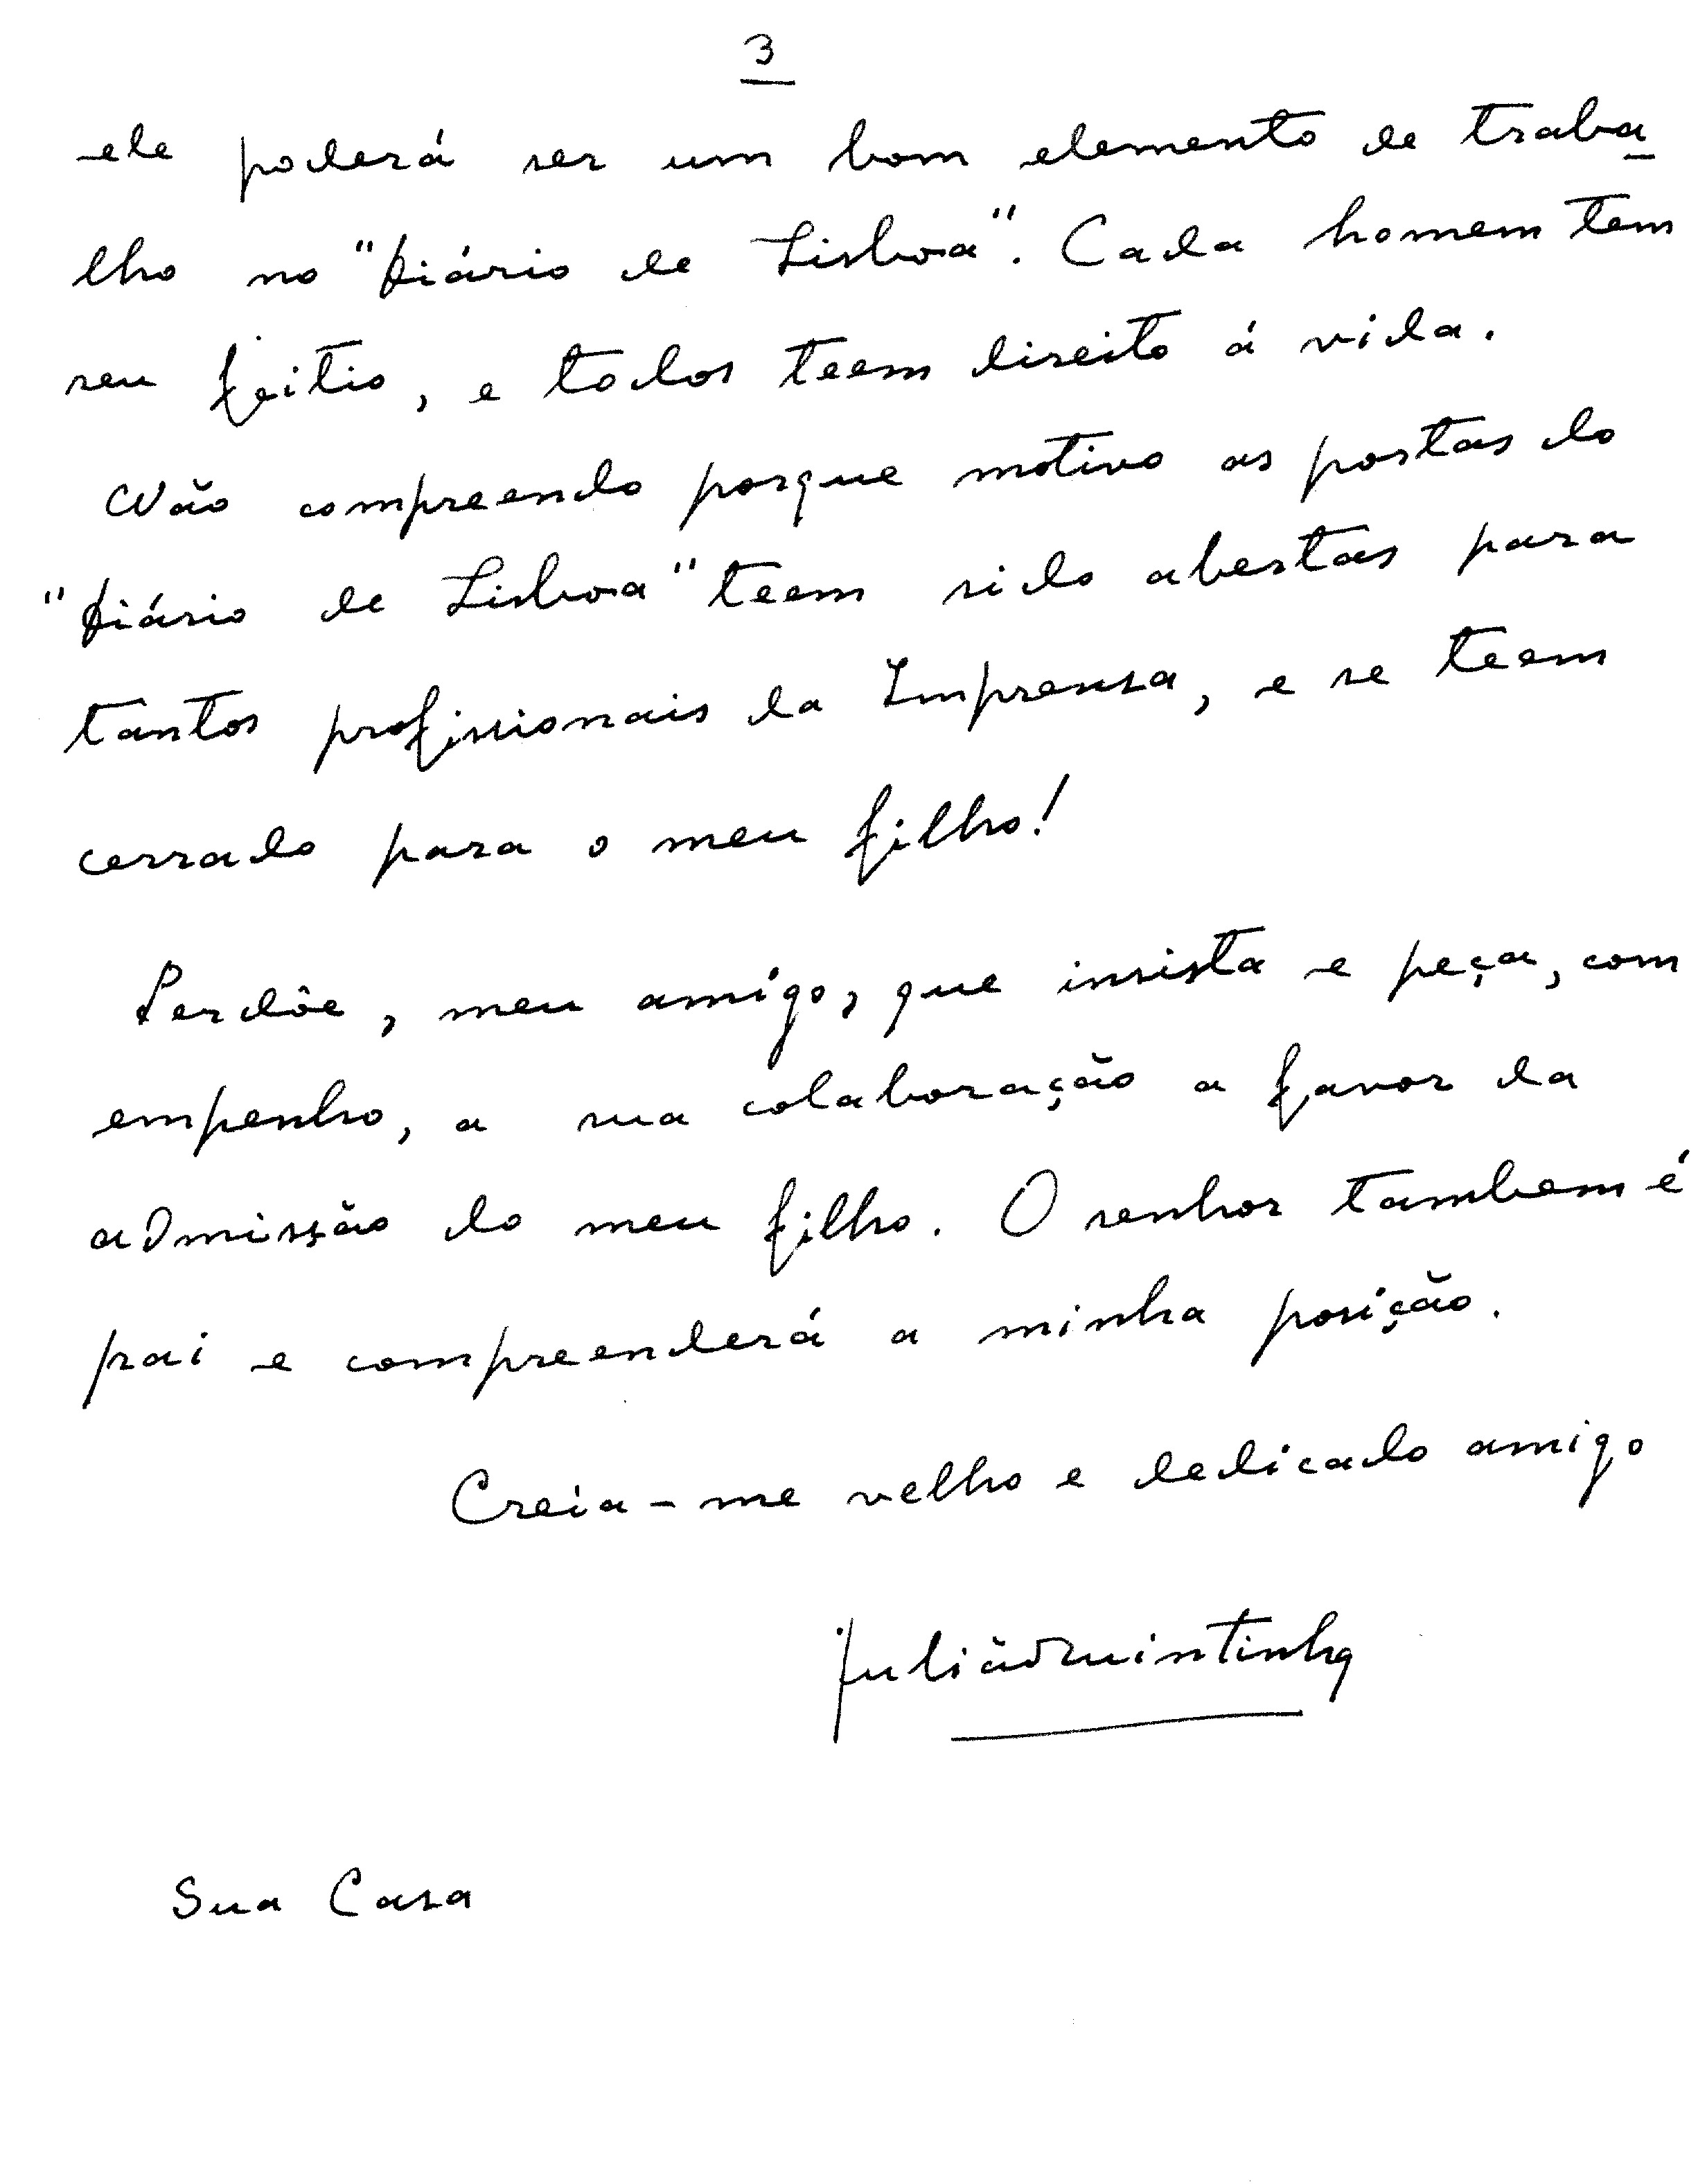 3
ele poderá ser um bom elemento de traba
lho no "Diário de Lisboa". Cada homem tem
seu feitio, e todos teem direito á vida.
Não compreendo porque motivo as portas do
"Diário de Lisboa" teem sido abertas para
tantos profissionais da Imprensa, e se teem
cerrado para o meu filho!
Perdôe, meu amigo, que insista e peça, com
empenho, a sua colaboração a favor da
admissão do meu filho. O senhor tambem é
pai e compreenderá a minha posição.
Creia-me velho e dedicado amigo
Julião Quintinha
Sua Casa